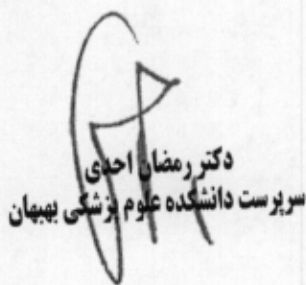 دکتر رمضان احدی
سرپرست دانشکده علوم پزشکی بهبهان